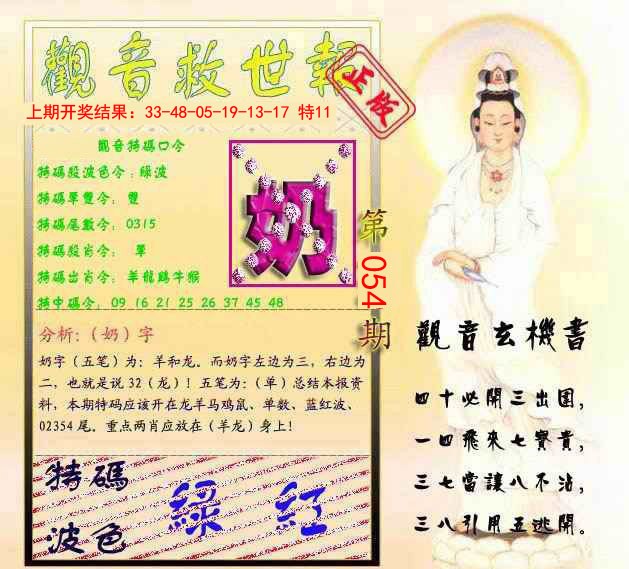 觀音救世報
正版
上期开奖结果：33-48-05-19-13-17 特11
觀音特碼口令
特碼段波色令：綠波
特碼單雙令： 雙
特碼尾數令： 0315
特碼段肖令： 單
特碼出肖令：羊龍鷄牛猴
特中碼令： 09 16 21 25 26 37 45 48
奶
第054期
分析：（奶）字
奶字（五笔）为：羊和龙。而奶字左边为三，右边为
二，也就是说 32（龙）！五笔为：（单）总结本报资
料，本期特码应该开在龙羊马鸡鼠、单数、蓝红波、
02354 尾。重点两肖应放在（羊龙）身上！
特碼
波色
綠 紅
觀音玄機書
四十必開三出围，
一四飛來七寶貴，
三七當讓八不沾，
三八引用五逃開。